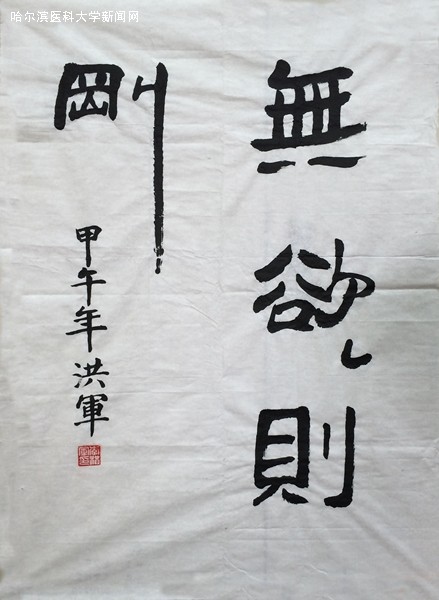 哈尔滨医科大学新闻网
無欲則
剛
甲午年洪軍